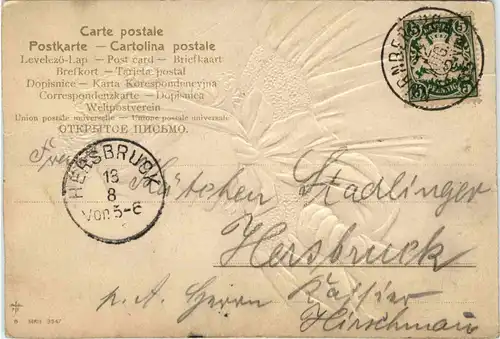 Carte postale
Postkarte – Cartolina postale
Levelező-Lap – Post card – Briefkaart
Brefkort – Tarjeta postal
Dopisnice – Karta Korespondencyjna
Correspondenzkarte – Dopisnica
Weltpostverein
Union postale universelle – Unione postale universale
ОТКРЫТОЕ ПИСЬМО.
5 5
PFENNIG
HERSBRUCK
18
8
Vor. 5-6
Stadlinger
Hersbruck
p. A. Herrn Kassier
Hirschmann